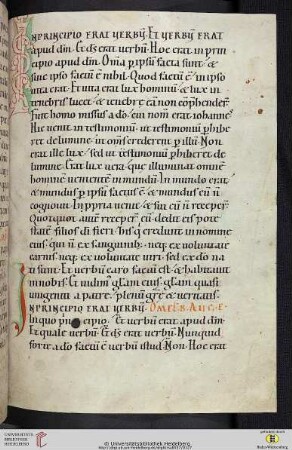 IN PRINCIPIO ERAT VERBŪ. ET VERBŪ ERAT
apud dm̄. Et dꝰ erat verbū. Hoc erat in prin
cipio apud dm̄. Om̄ia p ipsū facta sunt. &
sine ipso factū ē nihil. Quod factū ē in ipso
uita erat. Et uita erat lux hominū. & lux in
tenebris lucet. & tenebrę eā non cōp̄hender̄.
Fuit homo missus a dō. cui nom̄ erat iohannes.
Hic uenit in testimoniū. ut testimoniū phibe
ret de lumine. ut om̄s crederent p illū. Non
erat ille lux. sed ut testimoniū phiberet de
lumine. Erat lux uera. que illuminat omnē
hominē uenientē in mundū. In mundo erat.
& mundus p ipsū factus ē. & mundus eū n̄
cognouit. In ppria uenit. & sui eū n̄ receper̄.
Quotquot autē receper̄ eū. dedit eis pote
statē filios dī fieri. his q credunt in nomine
eius. qui n̄ ex sanguinib. neq; ex uoluntate
carnis. neq; ex uoluntate uiri. sed ex dō na
ti sunt. Et uerbū caro factū est. & habitauit
in nobis. Et uidim glam eius. glam quasi
unigeniti a patre. plenū grē & ueritatis.
IN PRINCIPIO ERAT VERBŪ.
In quo principio. Et uerbū erat apud dm̄.
Et quale uerbū. Et dꝰ erat uerbū. Nunquid
forte a dō factū ē uerbū istud. Non. Hoc erat
UNIVERSITÄTS-
BIBLIOTHEK
HEIDELBERG
© Universitätsbibliothek Heidelberg
gefördert durch
Baden-Württemberg